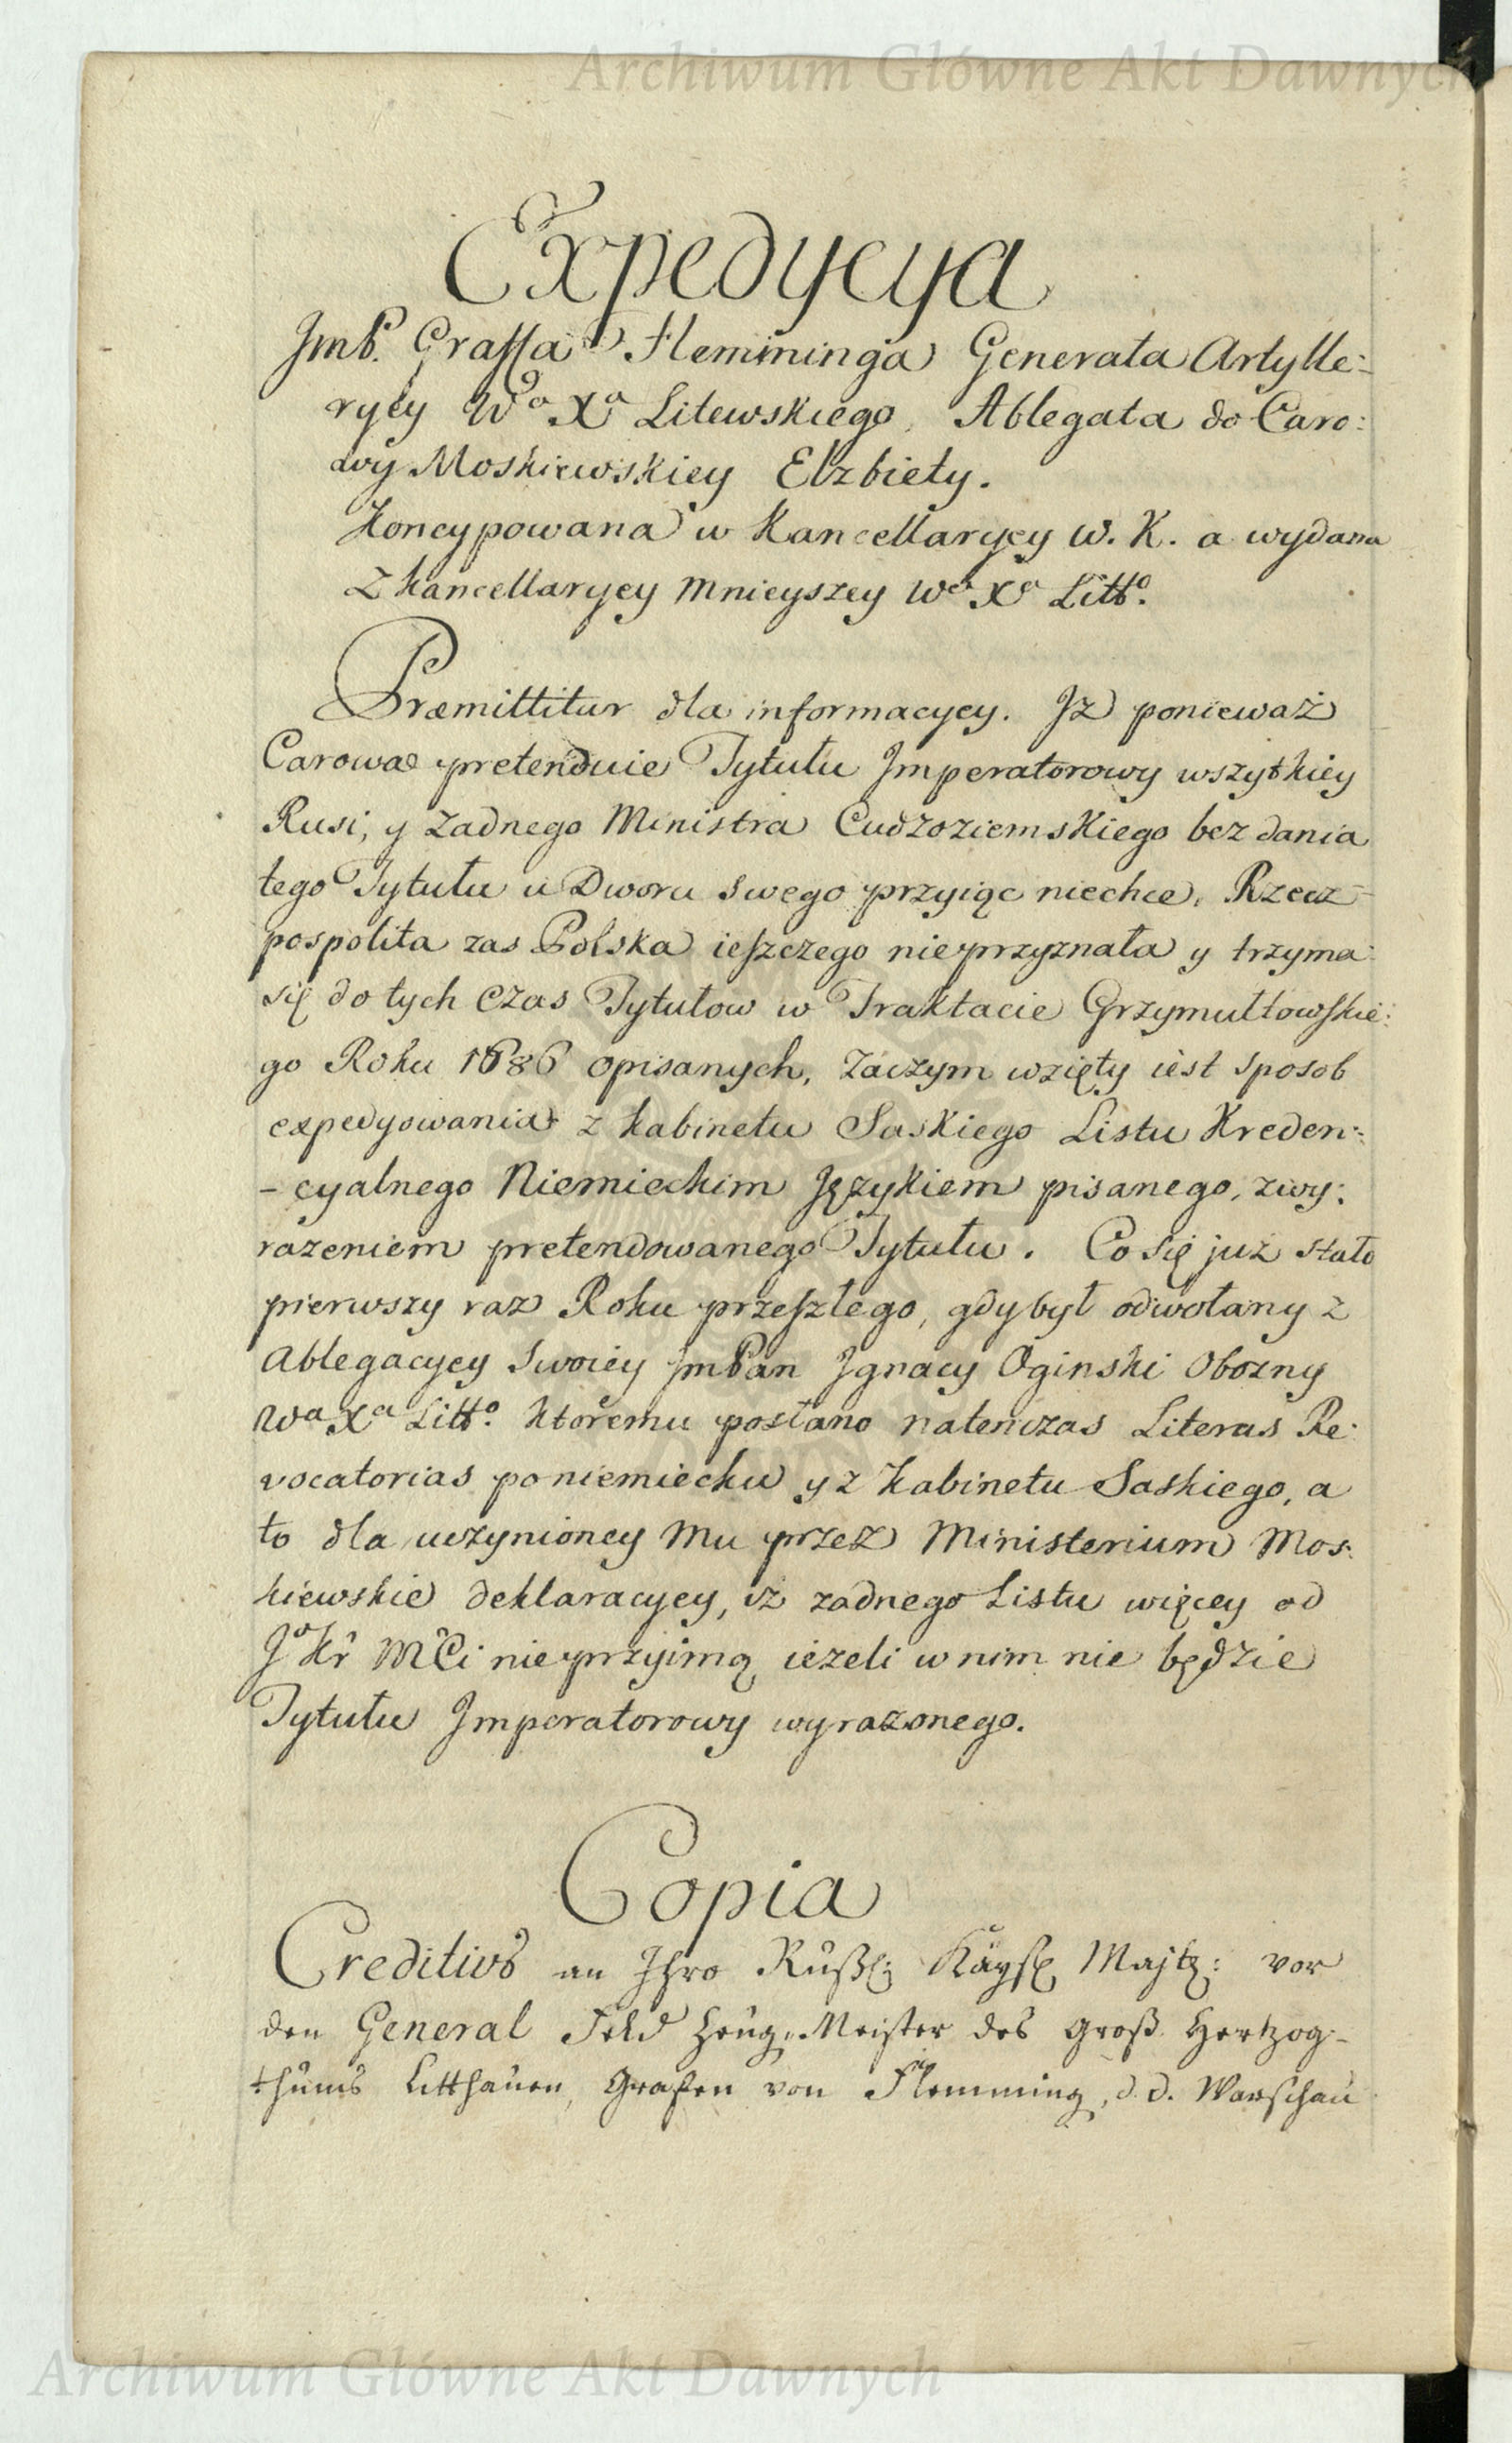 Archiwum Główne Akt Dawnych
Expedycya
JmP. Graffa Flemminga Generała Artylle:
ryey Wᵒ Xᵃ Litewskiego, Ablegata do Caro:
wy Moskiewskiey Elzbiety.
Koncypowana w Kancellaryey W. K. a wydana
z kancellaryey mnieyszey Wᵒ Xᵃ Littᵒ.
Præmittitur dla informacyey. Jż ponieważ
Carowa pretenduie Tytułu Jmperatorowy wszytkiey
Rusi, y zadnego Ministra Cudzoziemskiego bez dania
tego Tytułu u Dworu swego przyiąc niechce, Rzecz
pospolita zas Polska ieszczego nieprzyznała y trzyma
się do tych czas Tytułow w Traktacie Grzymułtowskie:
go Roku 1686 opisanych, zaczym wzięty iest sposob
expedyowania z kabinetu Saskiego Listu Kreden:
- cyalnego Niemieckim Językiem pisanego, zwy:
razeniem pretendowanego Tytułu. Co się już stało
pierwszy raz Roku przeszłego, gdy był odwołany z
Ablegacyey swoiey JmPan Jgnacy Oginski Obozny
Wᵃ Xᵃ Littᵒ. ktoremu posłano natenczas Literas Re:
vocatorias po niemiecku y z kabinetu Saskiego, a
to dla uczynioney mu przez Ministerium Mos:
kiewskie deklaracyey, iz zadnego Listu więcey od
Jᵒ Kr̂ MCi nie przyimą, iezeli w nim nie będzie
Tytułu Jmperatorowy wyrazonego.
Copia
Creditivs an Ihro Rußl: Käysl Majtz: vor
den General Feld Zeug-Meister des Groß Hertzog-
thums Litthauen, Grafen von Flemming, d. d. Warschau
Archiwum Główne Akt Dawnych